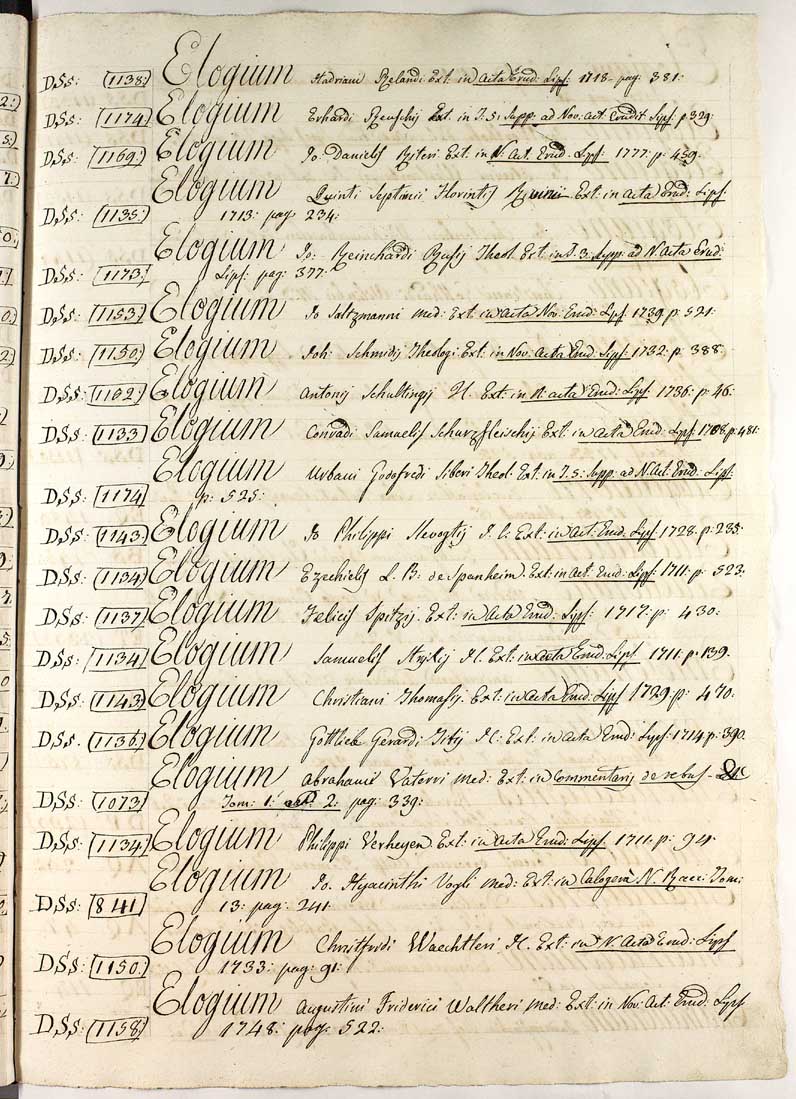 D.S.s: 1138: Elogium Hadriani Relandi Ext: in Acta Erud: Lips: 1718. pag: 381:
D.S.s: 1174 Elogium Erhardi Reuschij Ext. in T. 5: Supp: ad Nov. Act. Erudit Lips: p. 329:
D.S.s: 1169: Elogium Jo: Danielis Riteri Ext. in N. Act. Erud. Lips: 1777. p: 459.
Elogium Quinti Septimii Florintis Rivini Ext: in Acta Erud: Lips:
D.S.s: 1135: 1713: pag: 234:
Elogium Jo: Reinchardi Rusij Theol. Ext. in T. 3: Supp: ad N. Acta Erud:
D.S.s: 1173: Lips: pag: 377:
D.S.s: 1153: Elogium Jo Saltzmanni Med: Ext. in Acta Nov. Erud: Lips: 1739. p: 521:
D.S.s: 1150: Elogium Joh: Schmidij Theologi Ext: in Nov. Acta Erud Lips: 1732. p: 388:
D.S.s: 1162: Elogium Antonij Schultingij Ext: in N. Acta Erud: Lips: 1736: p: 46:
D.S.s: 1133 Elogium Conradi Samuelis Schurzfleischij Ext: in Acta Erud: Lips: 1708: p: 481:
Elogium Urbani Godofredi Siberi Theol: Ext: in T. 5: Supp: ad N. Act: Erud: Lips:
D.S.s: 1174 p: 525:
D.S.s: 1143: Elogium Jo Philippi Slevogtij Ext: in Act: Erud: Lips: 1728. p: 235:
D.S.s: 1134: Elogium Ezechielis L. B: de Spanheim. Ext: in Act: Erud: Lips: 1711: p: 523:
D.S.s: 1137: Elogium Felicis Spitzij. Ext: in Acta Erud: Lips: 1717: p: 430:
D.S.s: 1134: Elogium Samuelis Strykij Ext: in Acta Erud: Lips 1711. p: 139:
D.S.s: 1143: Elogium Christiani Thomasij Ext: in Acta Erud: Lips 1729. p: 470:
D.S.s: 1136: Elogium Gottlieb Gerardi Titij Ext: in Acta Erud: Lips: 1714 p: 390.
Elogium Abrahami Vateri Med: Ext: in Commentarij de rebus
D.S.s: 1073: Tom: 1: 2: pag: 339:
D.S.s: 1134: Elogium Philippi Verheyen Ext: in Acta Erud: Lips: 1711: p: 94:
Elogium Jo. Hyacinthi Vogli Med: Ext: in Calogerà N. Racc: Tom:
D.S.s: 841: 13: pag: 241:
Elogium Christfridi Waechtleri Ext: in N. Acta Erud: Lips
D.S.s: 1150: 1733: pag: 91:
Elogium Augustini Friderici Waltheri Med: Ext: in Nov: Act: Erud: Lips
D.S.s: 1158: 1748: pag: 522: